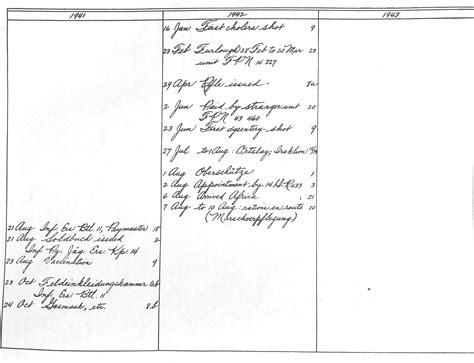 1941
21 Aug Inf. Ers Btl. 11, Paymaster 18
21 Aug Soldbuch issued 2
Inf. Pz. Jäg. Ers. Kp. 14
23 Aug Vaccination 9
23 Oct Feldeinkleidungskammer
Inf. Ers Btl. 11
24 Oct Gasmask, etc. 8b
1942
16 Jan First cholera shot 9
23 Feb Furlough 28 Feb to 20 Mar 23
unit FPN 14 227
29 Apr Rifle issued - 8a
2 Jun Paid by stranger unit 20
FPN 43 460
23 Jun First dysentery shot 9
27 Jul to 1 Aug: Ortslag; Iraklion
1 Aug Oberschütze 1
2 Aug Appointment by 14./I.R. 3
6 Aug Arrived Africa 21
7 Aug to 10 Aug: rations en route 20
(Marschverpflegung)
1943